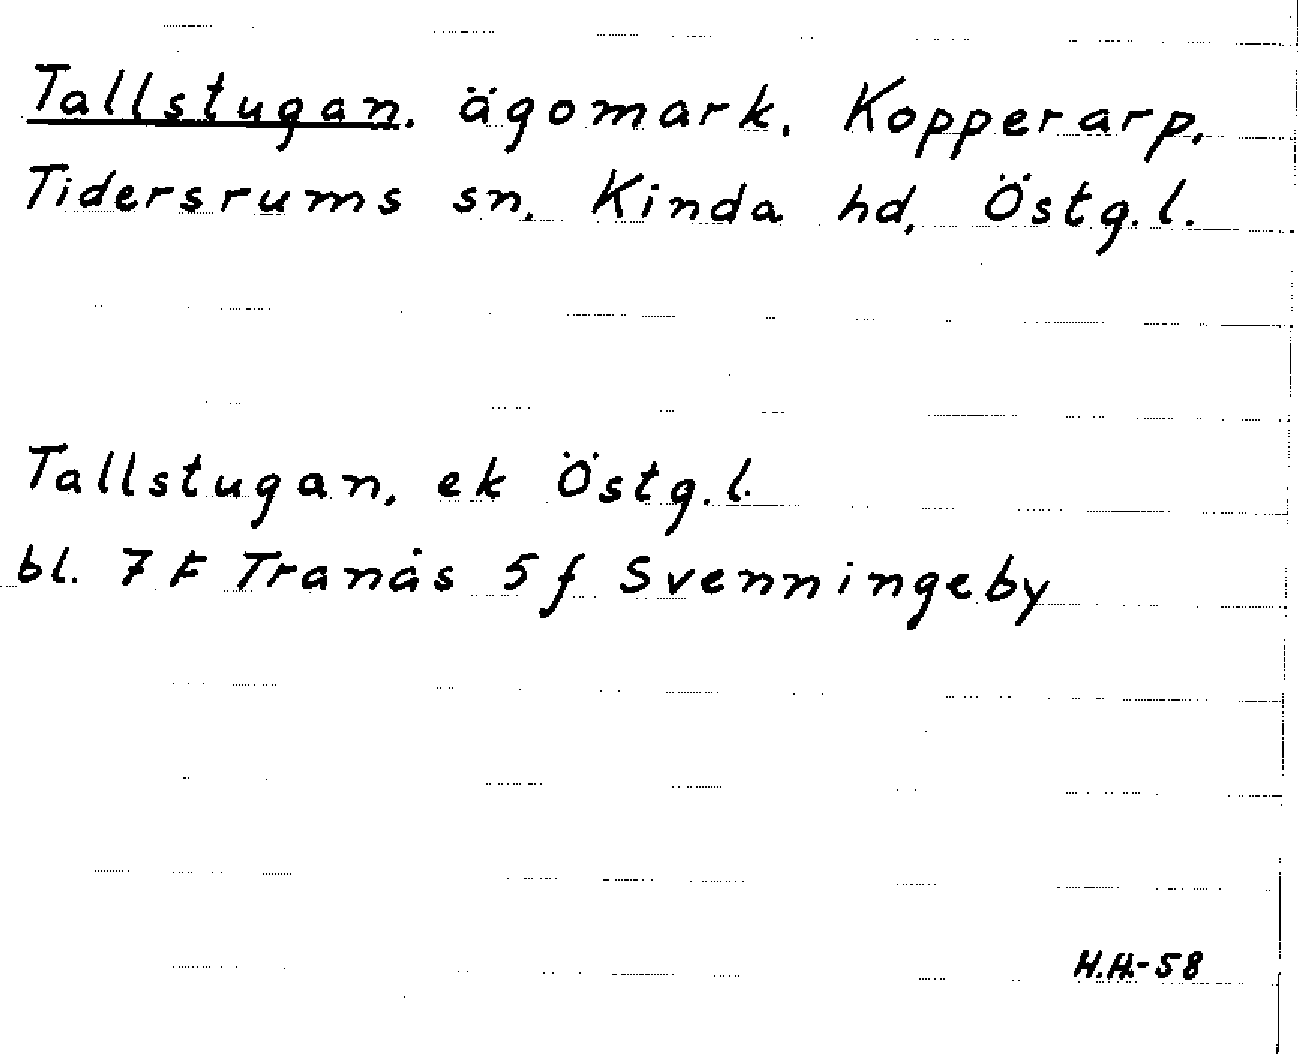 Tallstugan. ägomark, Kopperarp,
Tidersrums sn, Kinda hd, Östg.l.
Tallstugan, ek Östg.l.
bl. 7 F Tranås 5 f Svenningeby
H.H.-58